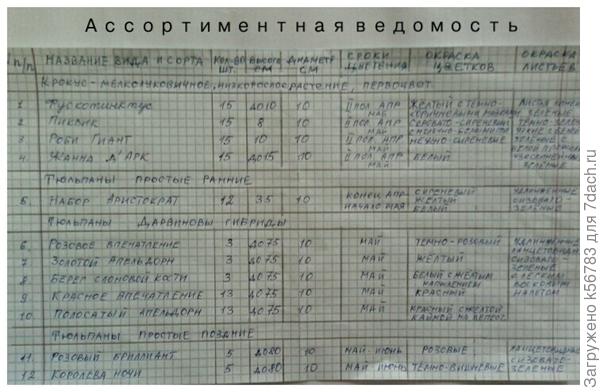 Ассортиментная ведомость
п/п НАЗВАНИЕ ВИДА И СОРТА КОЛ-ВО ШТ. ВЫСОТА СМ ДИАМЕТР СМ СРОКИ ЦВЕТЕНИЯ ОКРАСКА ЦВЕТКОВ ОКРАСКА ЛИСТЬЕВ
КРОКУС - МЕЛКОЛУКОВИЧНОЕ, НИЗКОРОСЛОЕ РАСТЕНИЕ, ПЕРВОЦВЕТ
1. ФУСКОТИНКТУС 15 ДО 10 10 II ПОЛ. АПР МАЙ ЖЕЛТЫЙ С ТЕМНО-
2. ПИКВИК 15 8 10 II ПОЛ АПР МАЙ СЕРОВАТО-СИРЕНЕВЫЙ
3. РОБИ ГИАНТ 15 10 10 II ПОЛ АПР МАЙ
4. ЖАННА Д'АРК 15 ДО 15 10 II ПОЛ АПР БЕЛЫЙ
ТЮЛЬПАНЫ ПРОСТЫЕ РАННИЕ
5. НАБОР АРИСТОКРАТ 12 35 10 КОНЕЦ АПР НАЧАЛО МАЯ СИРЕНЕВЫЙ ЖЕЛТЫЙ БЕЛЫЙ УДЛИНЕННЫЕ СИЗОВАТО-ЗЕЛЕНЫЕ
ТЮЛЬПАНЫ ДАРВИНОВЫ ГИБРИДЫ
6. РОЗОВОЕ ВПЕЧАТЛЕНИЕ 3 ДО 75 10 МАЙ ТЕМНО-РОЗОВЫЙ
7 ЗОЛОТОЙ АПЕЛЬДОРН 3 ДО 75 10 МАЙ ЖЕЛТЫЙ СИЗОВАТО-
8 БЕРЕГ СЛОНОВОЙ КОСТИ 3 ДО 75 10 МАЙ БЕЛЫЙ С ЖЕЛТЫМ НАПЫЛЕНИЕМ ЗЕЛЕНЫЕ С ЛЕГКИМ
9 КРАСНОЕ ВПЕЧАТЛЕНИЕ 13 ДО 75 10 МАЙ КРАСНЫЙ ВОСКОВЫМ НАЛЕТОМ
10. ПОЛОСАТЫЙ АПЕЛЬДОРН 13 ДО 75 10 МАЙ КРАСНЫЙ С ЖЕЛТОЙ КАЙМОЙ
ТЮЛЬПАНЫ ПРОСТЫЕ ПОЗДНИЕ
11. РОЗОВЫЙ БРИЛЛИАНТ 5 ДО 80 10 МАЙ-ИЮНЬ РОЗОВЫЕ СИЗОВАТО-
12 КОРОЛЕВА НОЧИ 5 ДО 80 10 МАЙ ИЮНЬ ТЕМНО-ВИШНЕВЫЕ ЗЕЛЕНЫЕ
Загружено k56783 для 7dach.ru